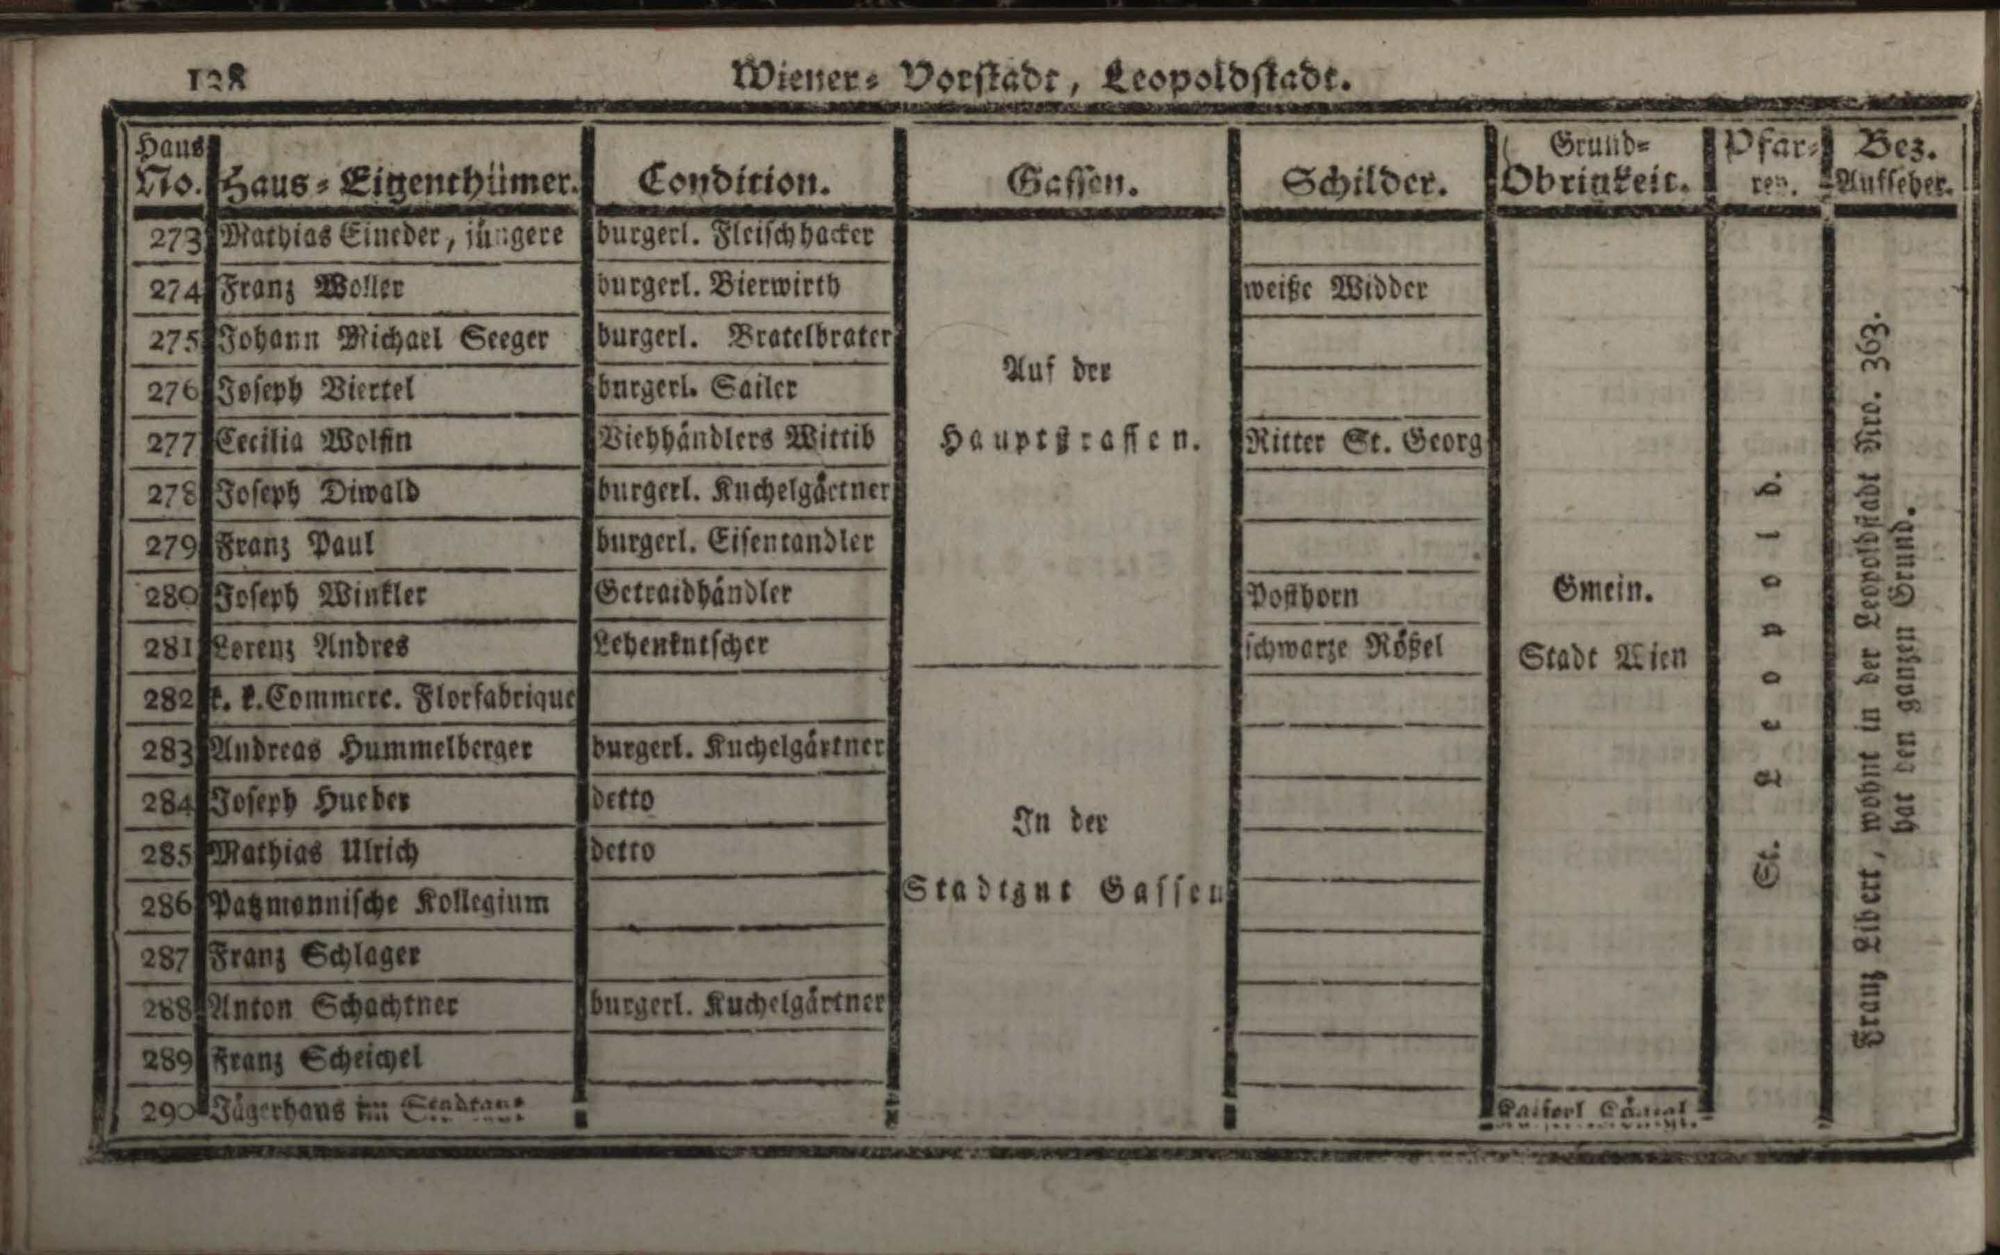 128
Wiener= Vorstadt, Leopoldstadt.
Haus No. Haus=Eigenthümer. Condition. Gassen. Schilder. Grund=Obrigkeit. Pfarren. Bez.=Aufseher.
273 Mathias Eineder, jüngere burgerl. Fleischhacker
274 Franz Woller burgerl. Bierwirth weiße Widder
275 Johann Michael Seeger burgerl. Bratelbrater
276 Joseph Viertel burgerl. Sailer
277 Cecilia Wolfin Viehhändlers Wittib Ritter St. Georg
278 Joseph Diwald burgerl. Kuchelgärtner
279 Franz Paul burgerl. Eisentandler
280 Joseph Winkler Getraidhändler Posthorn
281 Lorenz Andres Lehenkutscher schwarze Rößel
Auf der
Hauptstrassen.
282 k. k. Commerc. Florfabrique
283 Andreas Hummelberger burgerl. Kuchelgärtner
284 Joseph Hueber detto
285 Mathias Ulrich detto
286 Patzmannische Kollegium
287 Franz Schlager
288 Anton Schachtner burgerl. Kuchelgärtner
289 Franz Scheichel
290 Jägerhaus im Stadtgut
In der
Stadtgut Gassen
Gmein.
Stadt Wien
Kaiserl Königl.
St. Leopold.
Franz Libert, wohnt in der Leopoldstadt Nro. 363.
hat den ganzen Grund.